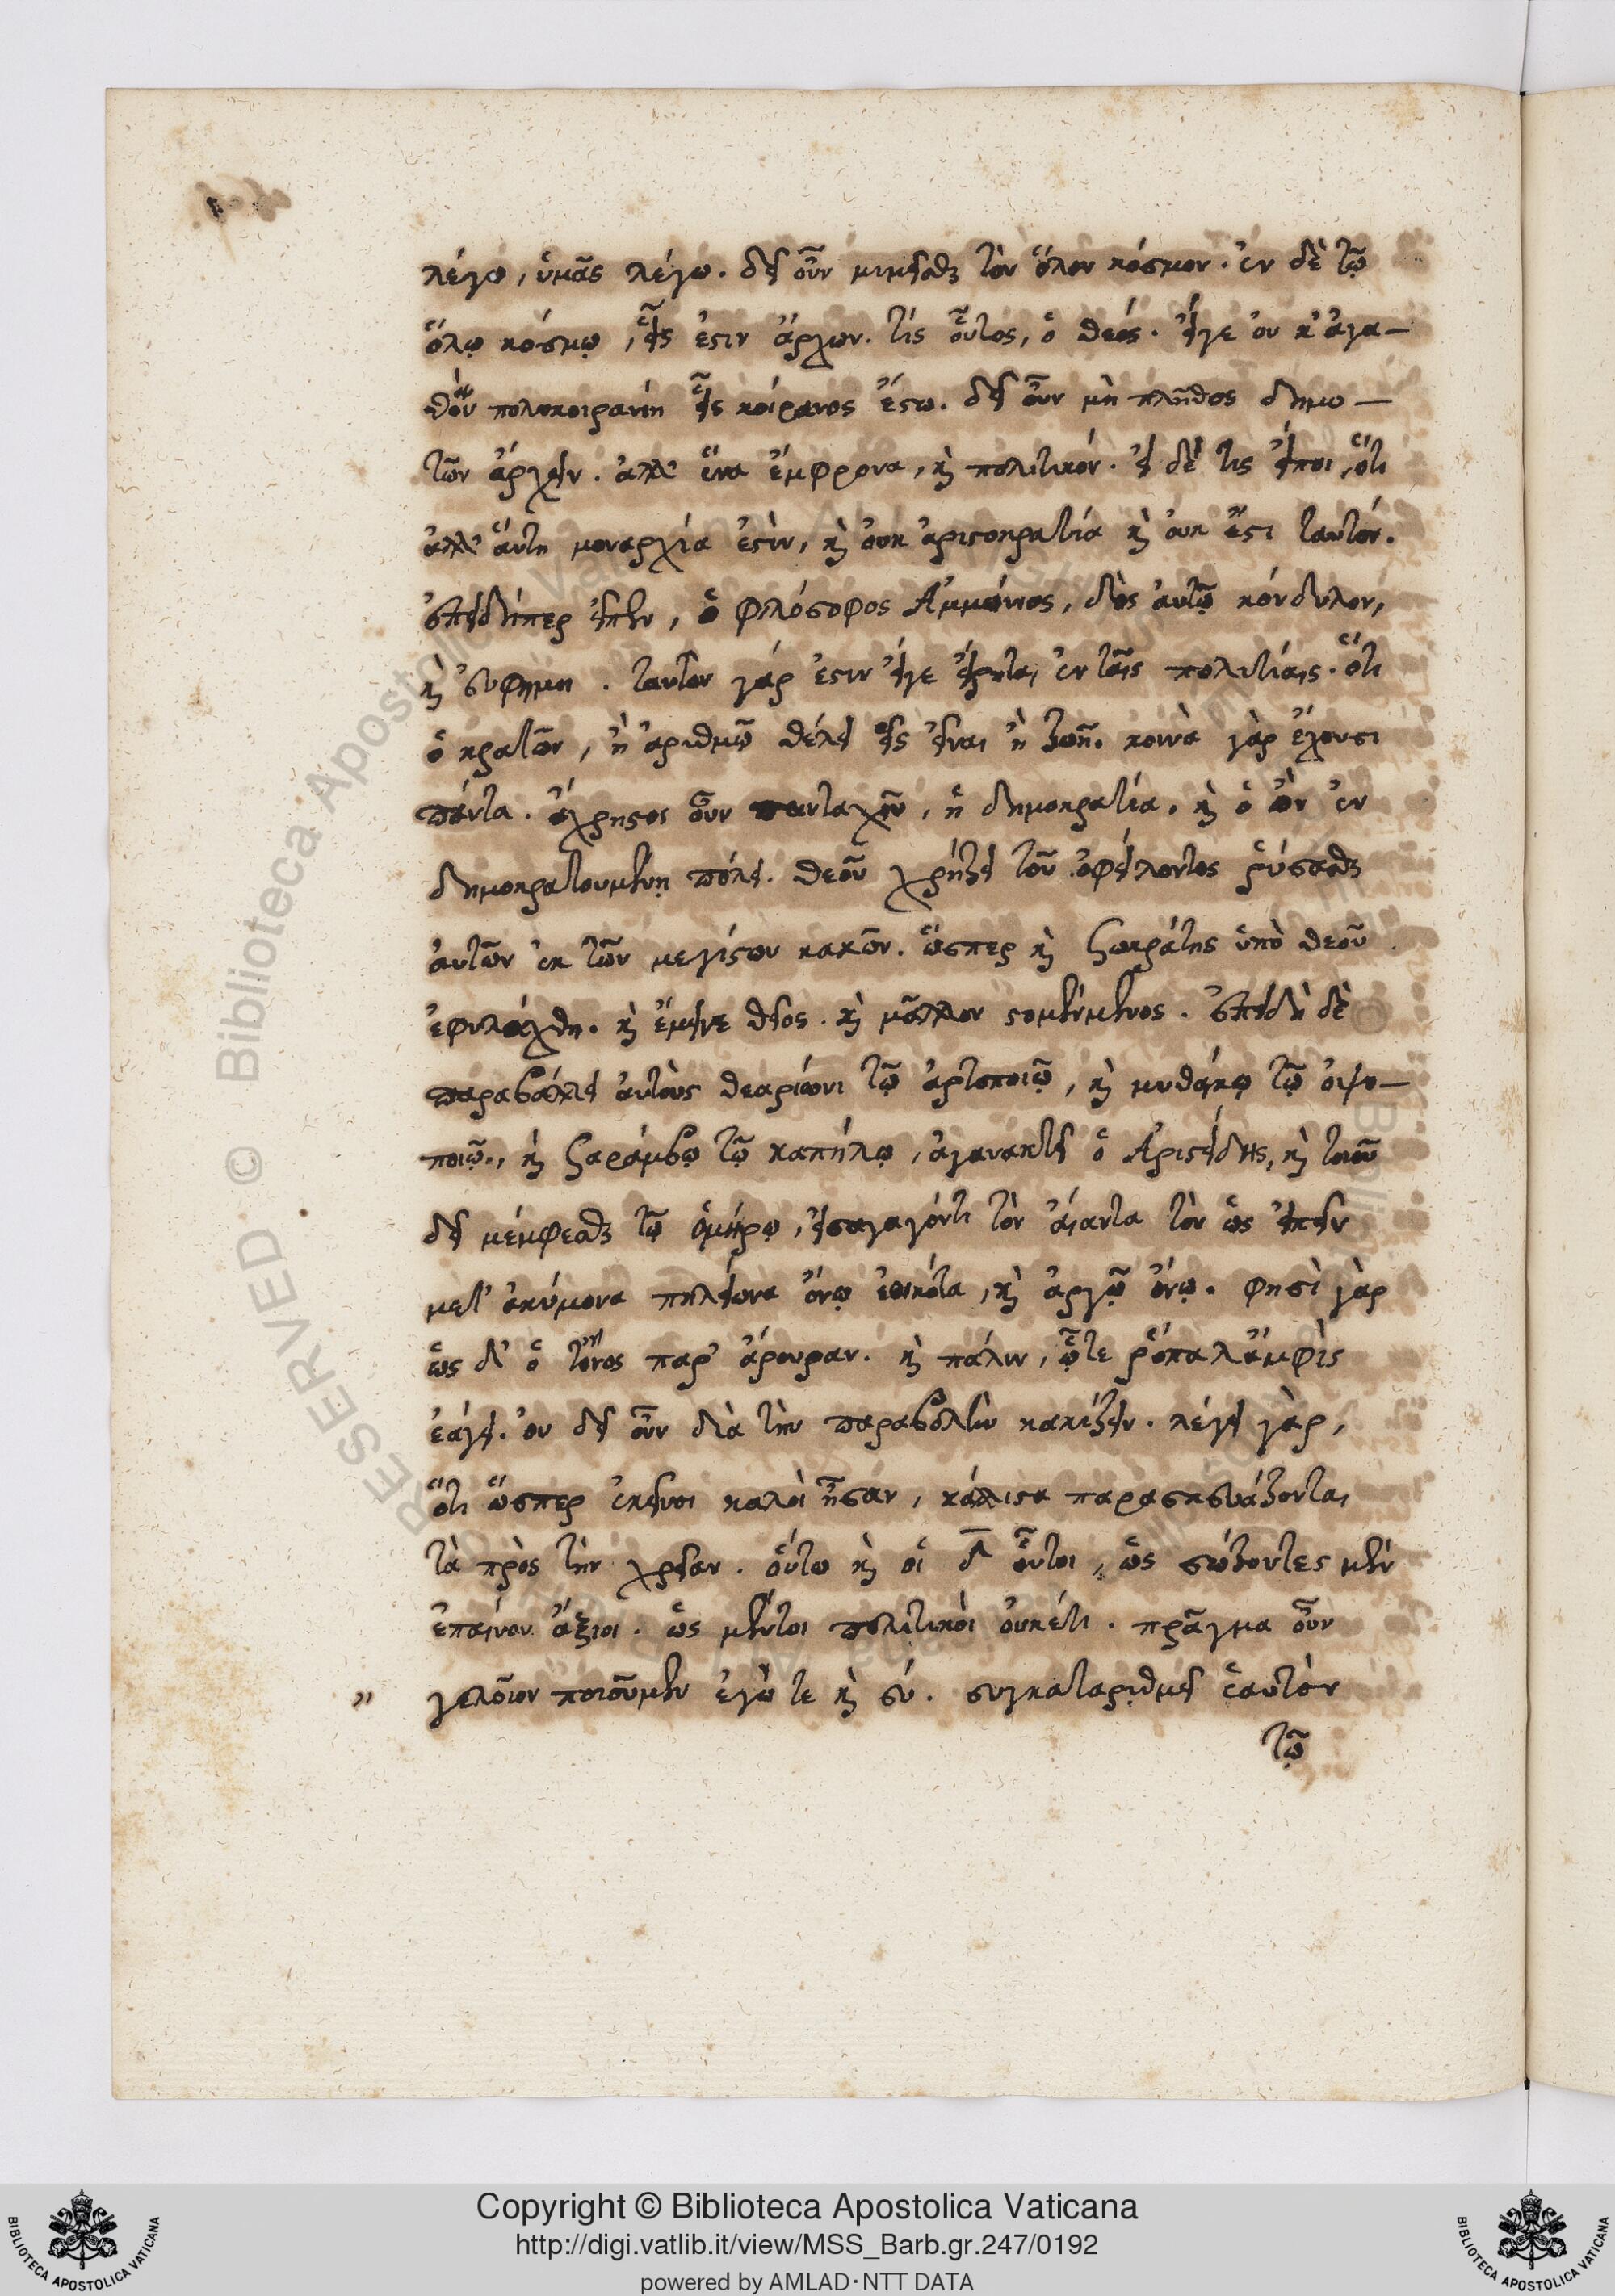 λέγω, ὑμᾶς λέγω. δεῖ οὖν μιμεῖσθαι τὸν ὅλον κόσμον. ἐν δὲ τῷ
ὅλῳ κόσμῳ, εἷς ἐστιν ἄρχων. τίς οὗτος, ὁ θεός. εἴγε οὐκ ἀγα-
θὸν πολυκοιρανίη εἷς κοίρανος ἔστω. δεῖ οὖν μὴ πλῆθος δημο-
τῶν ἄρχειν. ἀλλ' ἕνα ἔμφρονα, καὶ πολιτικόν. εἰ δέ τις εἴποι, ὅτι
ἀλλ' αὕτη μοναρχία ἐστὶν, καὶ οὐκ ἀριστοκρατία καὶ οὐκ ἔστι ταυτόν.
ἐπειδήπερ εἶπεν, ὁ φιλόσοφος Ἀμμώνιος, δὸς αὐτῷ κόνδυλον,
καὶ εὐφήμει. ταυτὸν γάρ ἐστιν εἴγε εἴρηται ἐν ταῖς πολιτείαις. ὅτι
ὁ κρατῶν, ἢ ἀριθμῷ θέλει εἷς εἶναι ἢ ζωῇ. κοινὰ γὰρ ἔχουσι
πάντα. ἄχρηστος οὖν πανταχοῦ, ἡ δημοκρατία. καὶ ὁ ὢν ἐν
δημοκρατουμένῃ πόλει. θεοῦ χρήζει τοῦ ὀφείλοντος ῥύσασθαι
αὐτῶν ἐκ τῶν μεγίστων κακῶν. ὥσπερ καὶ Σωκράτης ὑπὸ θεοῦ
ἐφυλάχθη. καὶ ἔμεινε θεῖος. καὶ μᾶλλον στομένμενος. ἐπειδὴ δὲ
παραβάλλει αὐτοὺς θεαρίωνι τῷ ἀρτοποιῷ, καὶ μυθαίκῳ τῷ ὀψο-
ποιῷ, καὶ Σαράμβῳ τῷ καπήλῳ, ἀγανακτεῖ ὁ Ἀριστείδης, καὶ
δεῖ μέμφεσθαι τῷ ὁμήρῳ, εἰσαγαγόντι τὸν αἴαντα τὸν ὡς εἰπεῖν
μετ' ἀκύμονα πηλείωνα ὄνῳ ἐοικότα, καὶ ἀργῷ ὄνῳ. φησὶ γὰρ
ὡς δ' ὁ τ' ὄνος παρ' ἄρουραν. καὶ πάλιν, ᾧτε ῥόπαλ' ἄμφὶς
ἐάγει. οὐ δεῖ οὖν διὰ τὴν παραβολὴν κακίζειν. λέγει γὰρ,
ὅτι ὥσπερ ἐκεῖνοι καλοὶ ἦσαν, κάλλιστα παρασκευάζονται
τὰ πρὸς τὴν χρείαν. οὕτω καὶ οἱ δ οὗτοι, ὡς σώζοντες μὲν
ἐπαίνου ἄξιοι. ὡς μέντοι πολιτικοὶ οὐκέτι. πρᾶγμα οὖν
" γελοῖον ποιοῦμεν ἐγώ τε καὶ σύ. συγκαταριθμεῖ ἑαυτὸν
τῷ
Copyright © Biblioteca Apostolica Vaticana
http://digi.vatlib.it/view/MSS_Barb.gr.247/0192
powered by AMLAD·NTT DATA